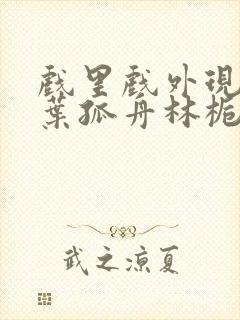 戲里戲外現
葉孤舟林栀
武之涼夏